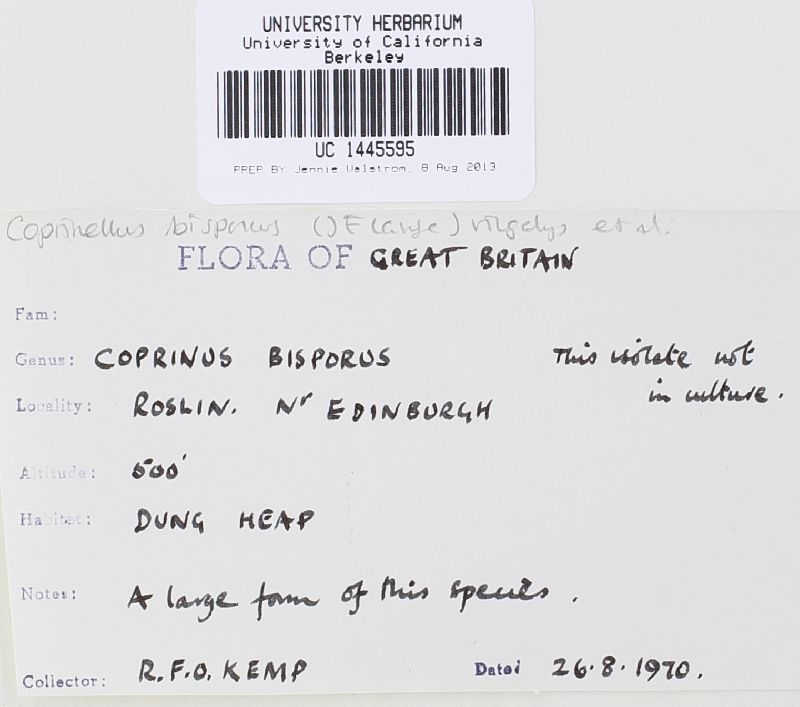 UNIVERSITY HERBARIUM
University of California
Berkeley
UC 1445595
PREP BY Jennie Walstrom, 8 Aug 2013
Coprinellus bisporus (J E Lange) Vilgalys et al.
FLORA OF GREAT BRITAIN
Fam:
Genus: COPRINUS BISPORUS This isolate not
in culture.
Locality: ROSLIN. Nr EDINBURGH
Altitude: 500'
Habitat: DUNG HEAP
Notes: A large form of this species.
Collector: R.F.O. KEMP Dated 26.8.1970.